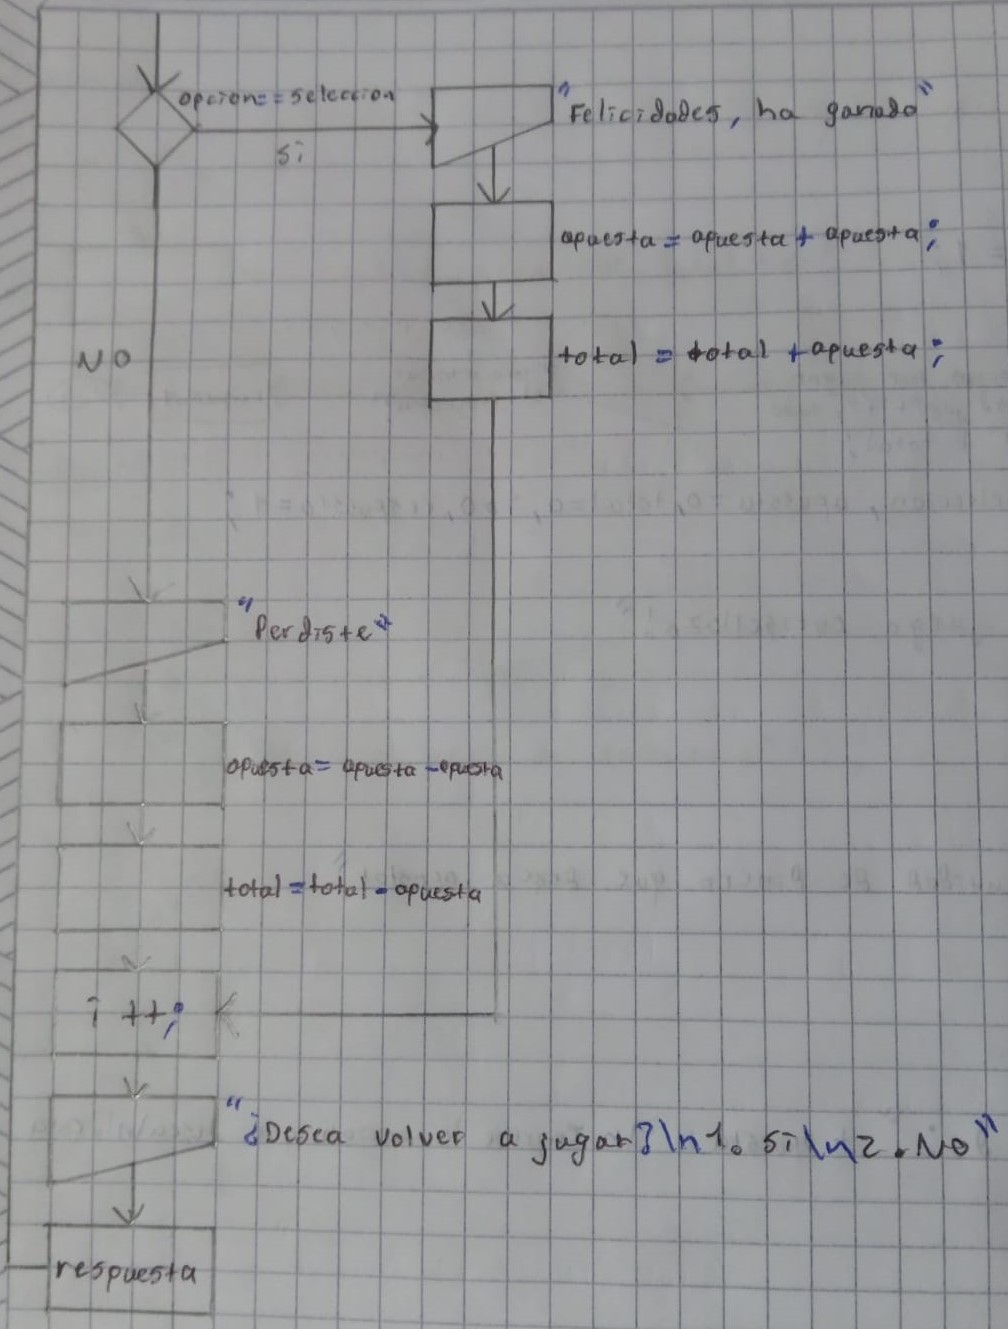 opcion==seleccion
Si
"Felicidades, ha ganado"
apuesta = apuesta + apuesta;
total = total + apuesta;
NO
"Perdiste"
apuesta = apuesta - apuesta
total = total - apuesta
i ++;
"¿Desea volver a jugar?\n1. Si\n2. No"
respuesta